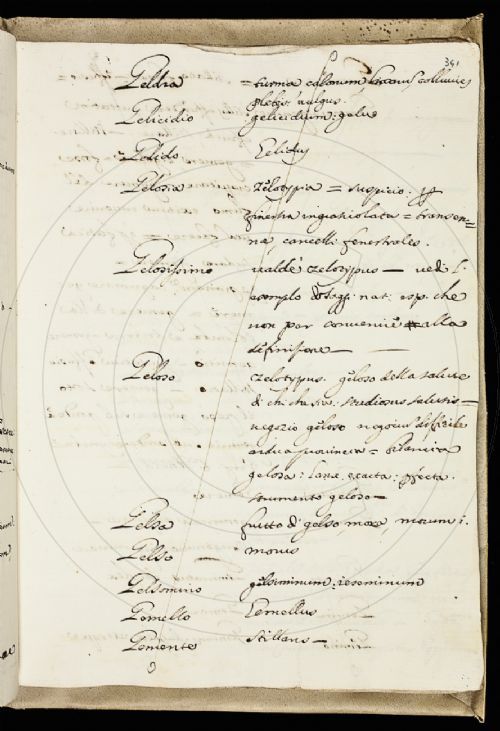 391
Geldra = turma calonum,
plebis: vulgus.
Gelicidio gelicidium: gelus
Gelido Gelidus
Gelosia zelotypia = suspicio:
finestra ingraticolata = transen=
na, cancelli fenestrales.
Gelosissimo valdè zelotypus — vedi l'
esempio nat: esp: che
non par alla
definisone —
Geloso zelotypus. geloso della salute
di studiosus salutis =
negozio geloso negocius difficile
ardua = bilancia
gelosa: exacta:
strumento geloso —
Gelsa frutto di gelso mora, morum i.
Gelso — morus
Gelsomino gelseminum: ieseminum
Gemello Gemellus
Gemente Stillans —